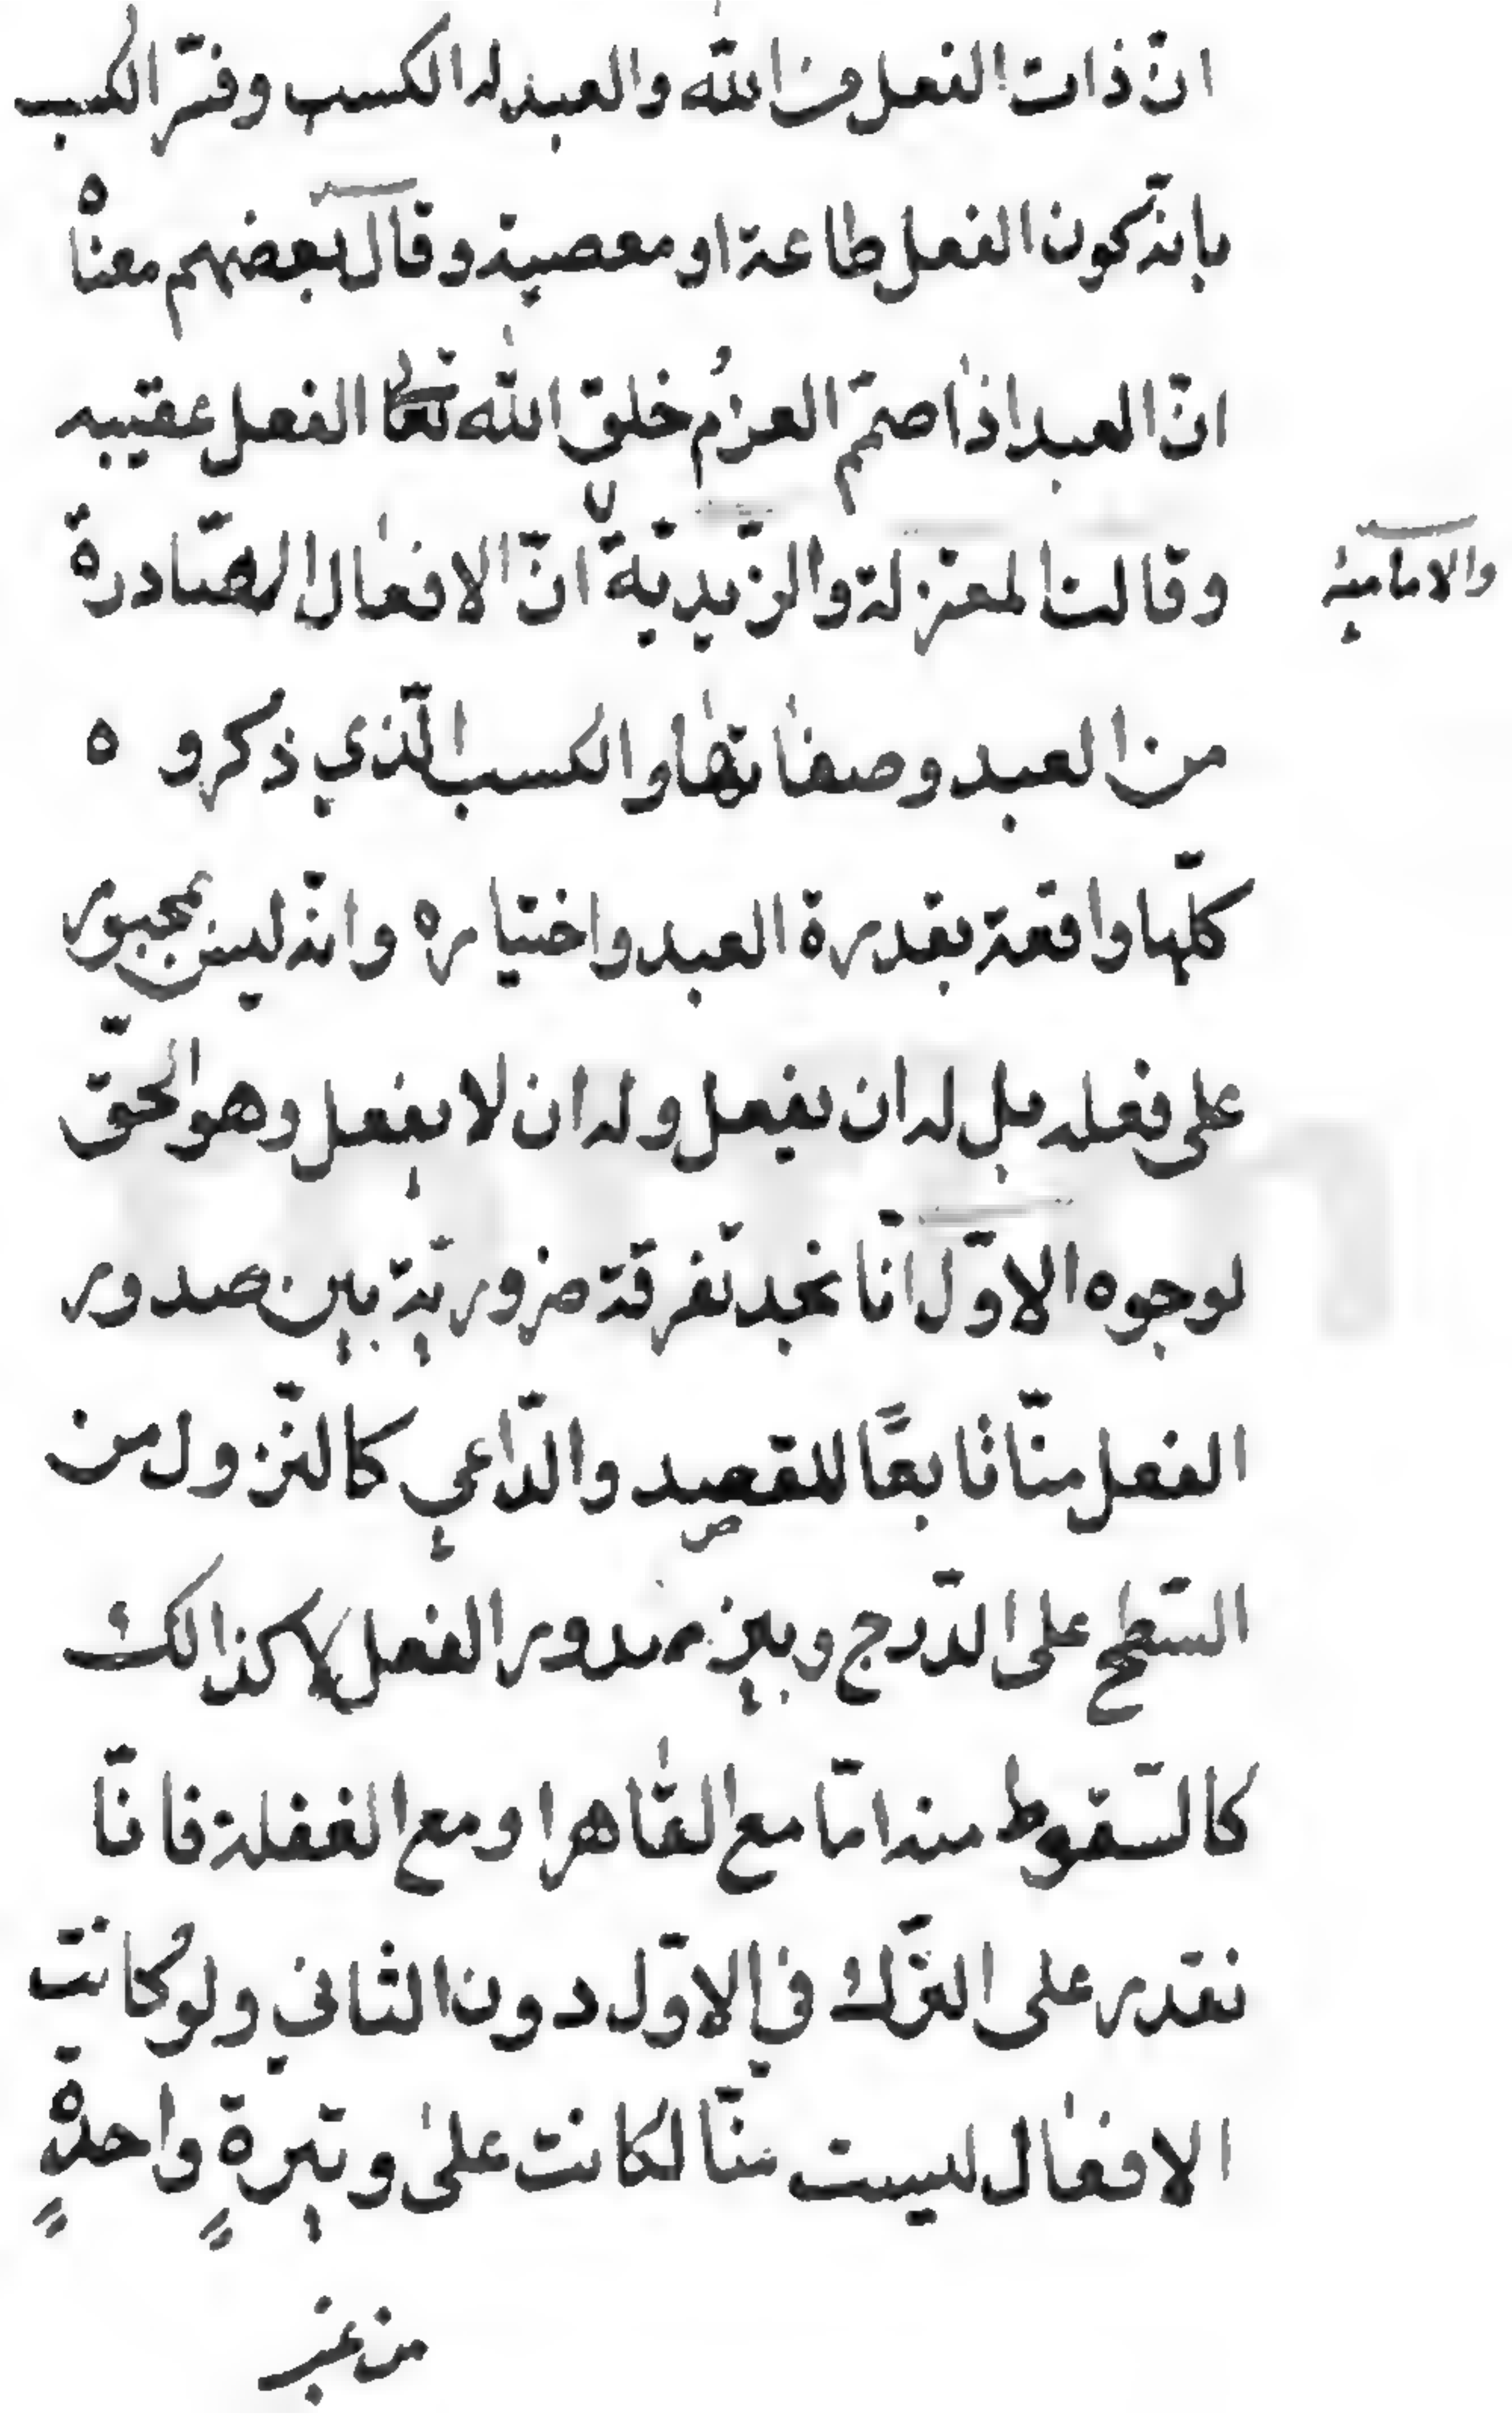 انّ ذات الفعل من الله والعبد له الكسب وفسّر الكسب
بانّه كون الفعل طاعة او معصية وقال بعضهم معناه
انّ العبد اذا صمّم العزم خلق الله تعا الفعل عقيبه
وقالت المعتزلة والزّيديّة انّ الافعال الصّادرة
والاماميّة
من العبد وصفاتها والكسب الّذي ذكروه
كلّها واقعة بقدرة العبد واختياره وانّه ليس بمجبور
على فعله بل له ان يفعل وله ان لا يفعل وهو الحقّ
لوجوه الاوّل انّا نجد تفرقة ضروريّة بين صدور
الفعل منّا تابعًا للقصد والدّاعي كالنّزول من
السّطح على الدّرج وبين صدور الفعل لا كذالك
كالسّقوط منه امّا مع القاهر او مع الغفلة فانّا
نقدر على التّرك في الاوّل دون الثاني ولو كانت
الافعال ليست منّا لكانت على وتيرةٍ واحدةٍ
من غير